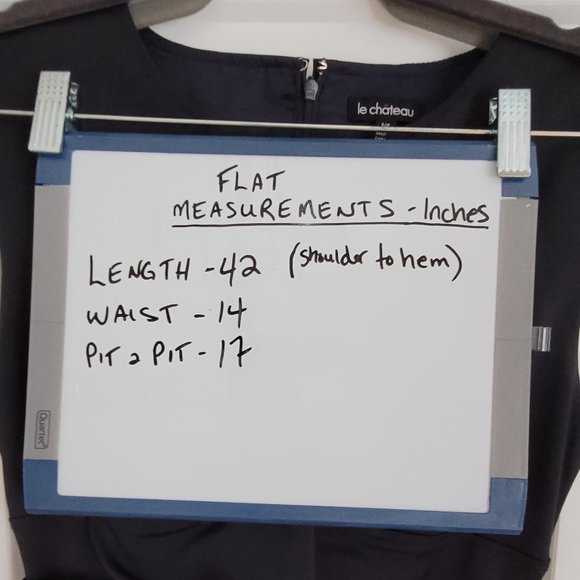 le château
FLAT
MEASUREMENTS - Inches
LENGTH - 42 (shoulder to hem)
WAIST - 14
PIT 2 PIT - 17
Quartet